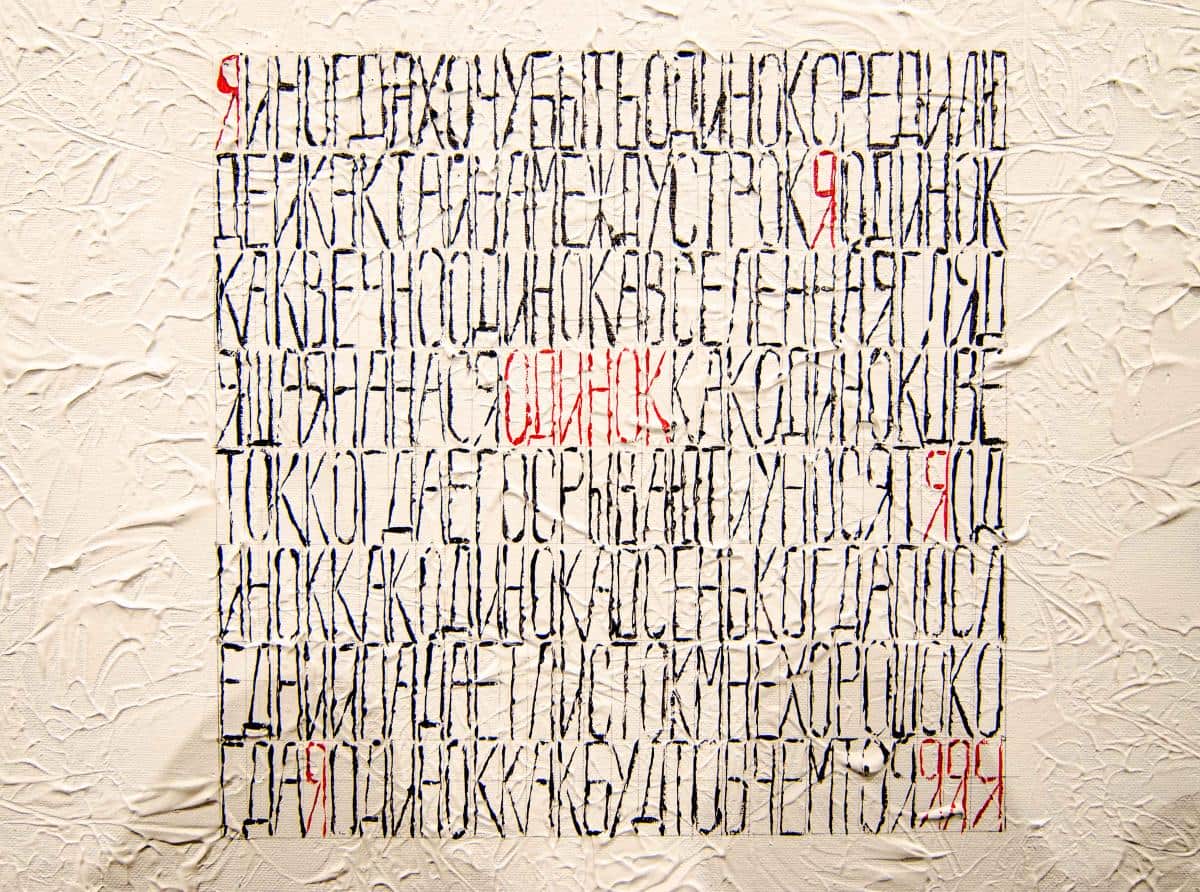 ЯИНОГДАХОЧУБЫТЬОДИНОКСРЕДИЛЮ
ДЕЙКАКТАЙНАМЕЖДУСТРОКЯОДИНОК
КАКВЕЧНООДИНОКАВСЕЛЕННАЯГЛЯД
ЯЩАЯНАНАСЯОДИНОККАКОДИНОКЦВЕ
ТОККОГДАЕГОСРЫВАЮТИУНОСЯТЯОД
ИНОККАКОДИНОКАОСЕНЬКОГДАПОСЛ
ЕДНИЙПАДАЕТЛИСТОКМНЕХОРОШОКО
ГДАЯОДИНОККАКБУДТОВЧЕМТОЯЯЯЯ